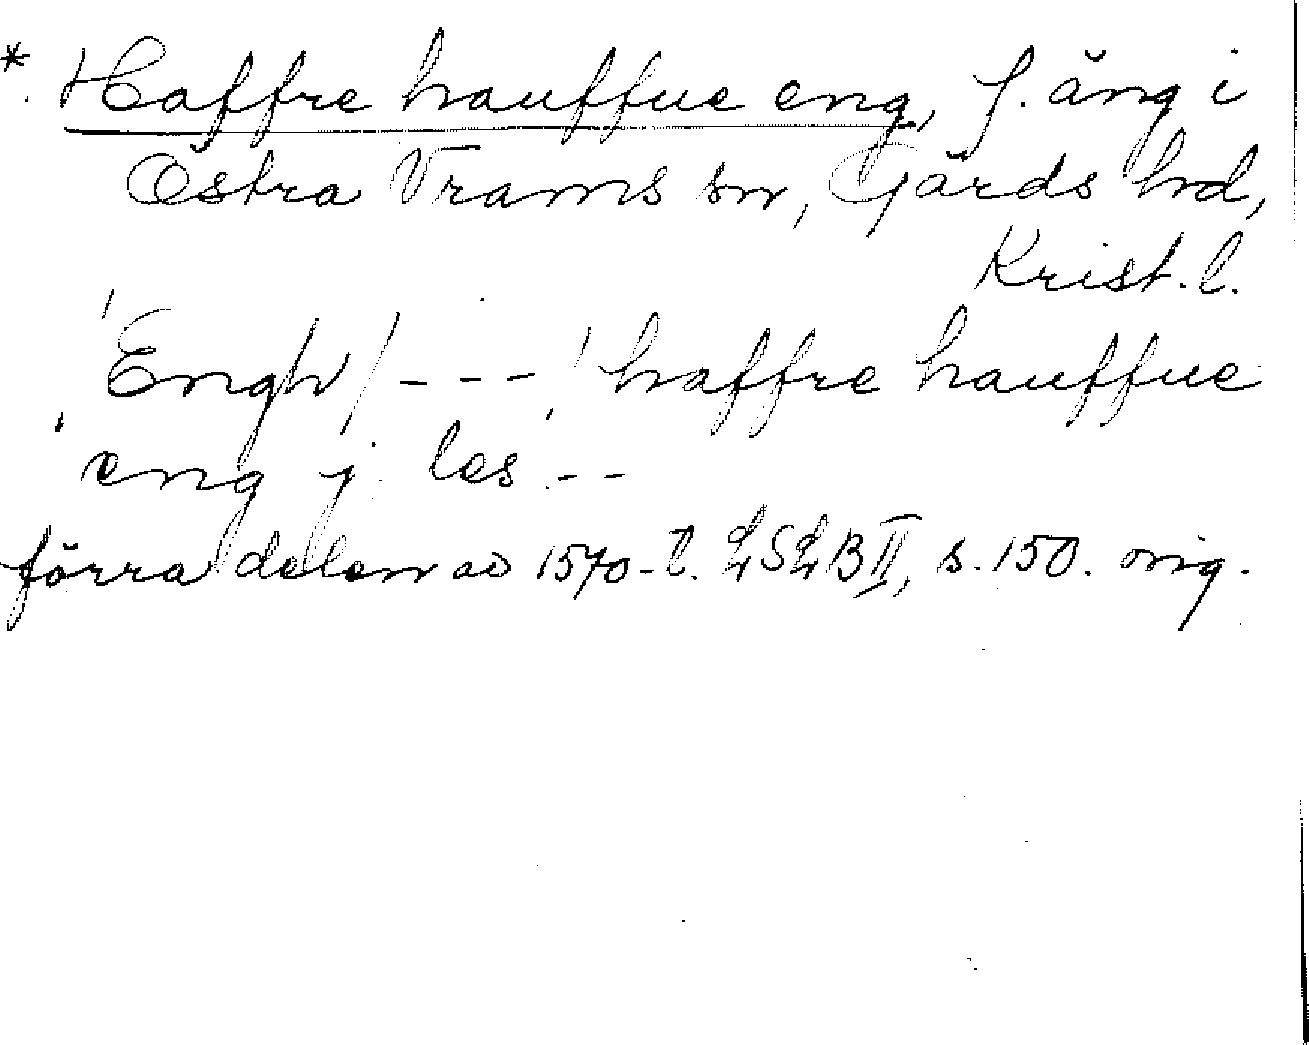 * Haffre hauffue eng, f. äng i
Östra Vrams sn, Gärds hd,
Krist. l.
'Engh/ --- ' haffre hauffue
eng j. les --
förra delen av 1570-t. LSLB II, s. 150. orig.